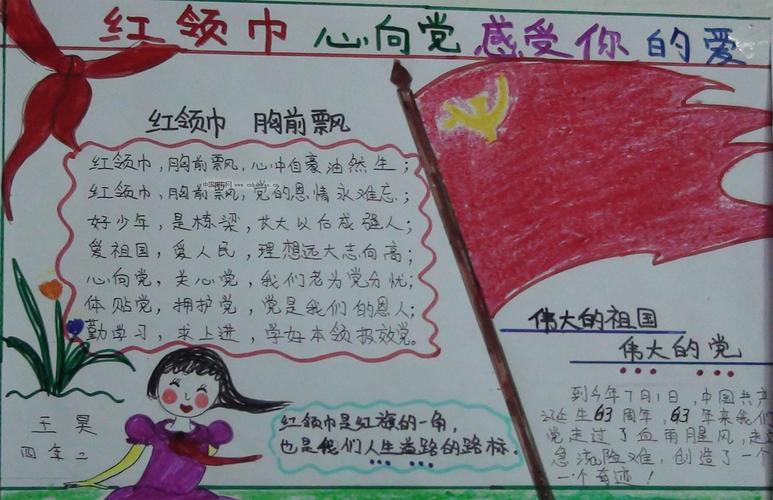 红领巾 心向党 感受你的爱
红领巾 胸前飘
红领巾，胸前飘，心中自豪油然生；
红领巾，胸前飘，党的恩情永难忘；
好少年，是栋梁，长大以后成强人；
爱祖国，爱人民，理想远大志向高；
心向党，关心党，我们老为党分忧；
体贴党，拥护党，党是我们的恩人；
勤学习，求上进，学好本领报效党。
王昊
四年二
红领巾是红旗的一角，
也是我们人生道路的路标.
伟大的祖国
伟大的党
到今年7月1日，中国共产
诞生63周年，63年来我们
党走过了血雨腥风，走
急流险难，创造了一个
一个奇迹！